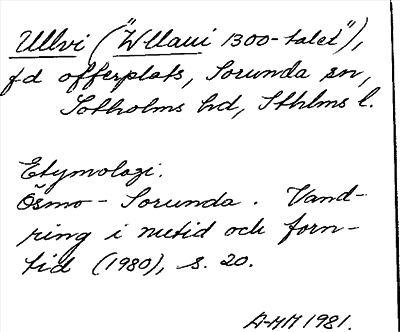 Ullvi ("Wllaui 1300-talet"),
fd offerplats, Sorunda sn,
Sotholms hd, Sthlms l.
Etymologi.
Ösmo - Sorunda. Vand-
ring i nutid och forn-
tid (1980), s. 20.
A-MH 1981.